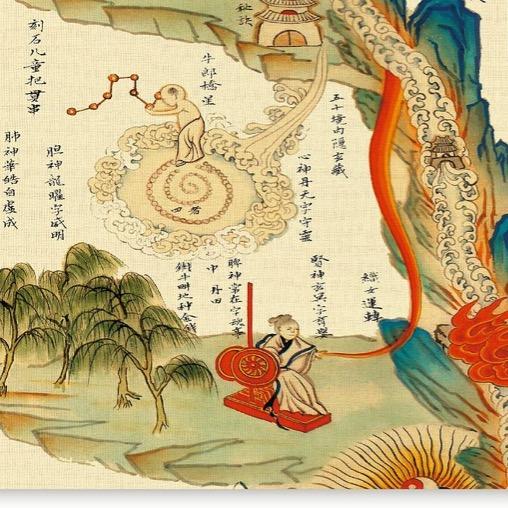 牛郎橋星
心神丹元字守靈
刻石儿童把貫串
胆神龍曜字威明
肺神華皓自虛成
織女運轉
腎神玄冥字育嬰
脾神常在字魂亭
中丹田
鐵牛畊地种金錢